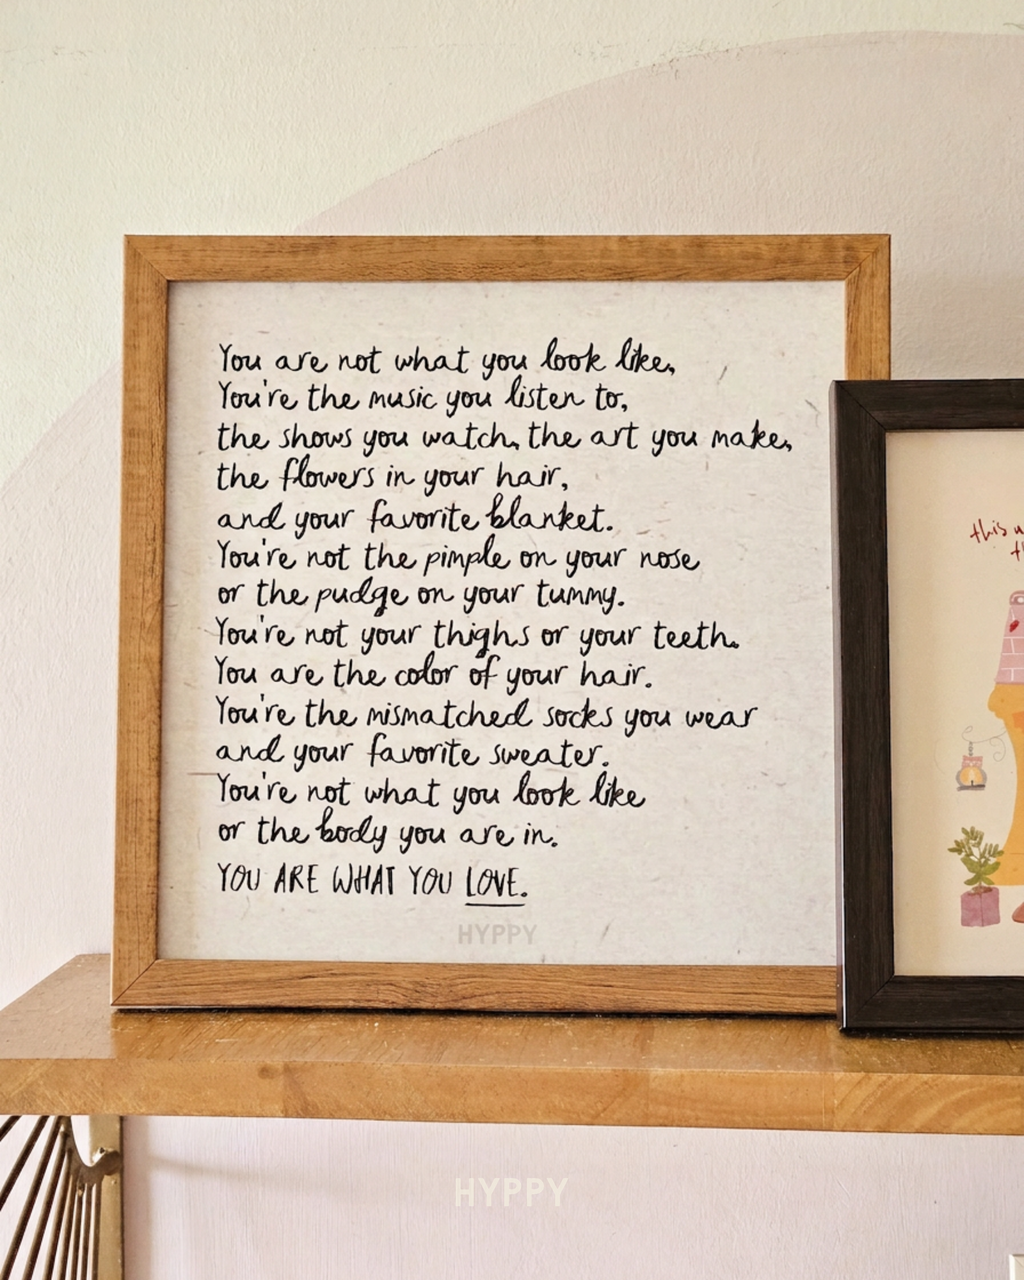 You are not what you look like,
You're the music you listen to,
the shows you watch, the art you make,
the flowers in your hair,
and your favorite blanket.
You're not the pimple on your nose
or the pudge on your tummy.
You're not your thighs or your teeth.
You are the color of your hair.
You're the mismatched socks you wear
and your favorite sweater.
You're not what you look like
or the body you are in.
YOU ARE WHAT YOU LOVE.
HYPPY
this
HYPPY